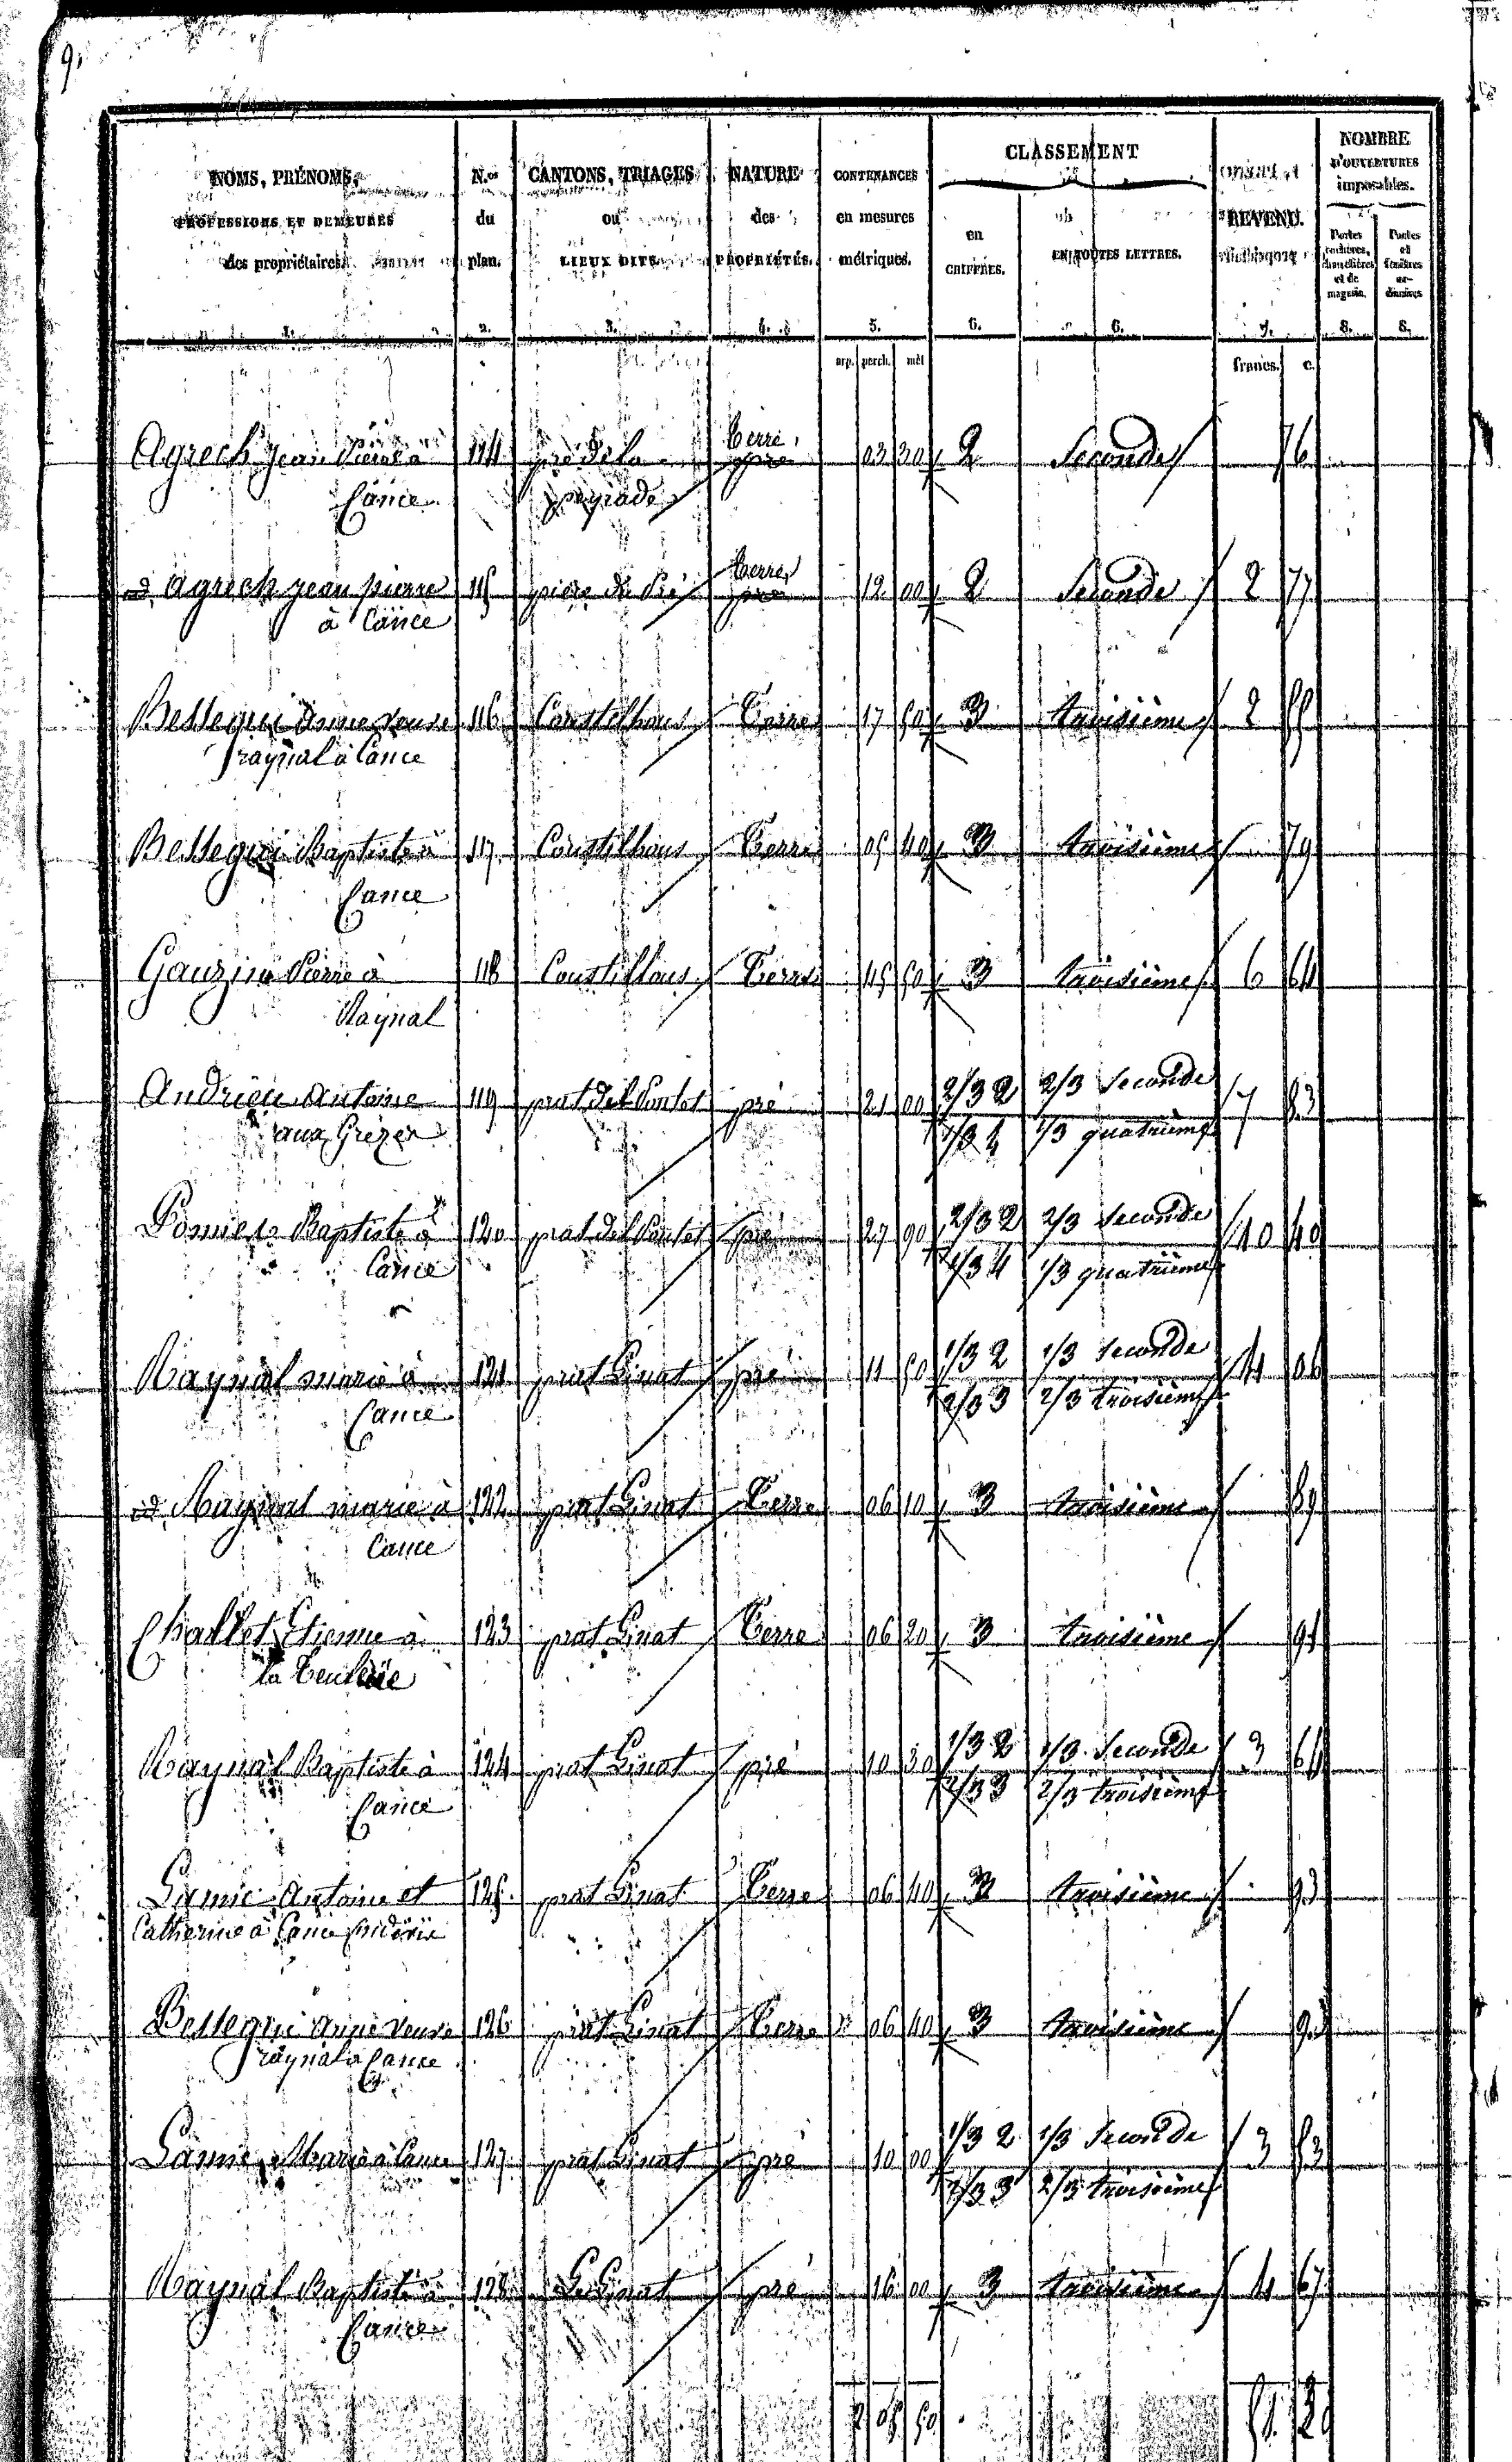 9.
NOMS, PRÉNOMS, PROFESSIONS ET DEMEURES des propriétaires.
N.os du plan.
CANTONS, TRIAGES ou LIEUX DITS.
NATURE des PROPRIÉTÉS.
CONTENANCES en mesures métriques.
CLASSEMENT
en CHIFFRES.
EN TOUTES LETTRES.
REVENU.
NOMBRE D'OUVERTURES imposables.
Portes cochères, charretières et de magasin.
Portes et fenêtres ordinaires
1. 2. 3. 4. 5. 6. 6. 7. 8. 8.
arp. perch. mèt francs. c.
Agrech jean Pierre à 114 pré de la terre pré 03 30 2 Seconde 76
Cance peyrade
id Agrech jean pierre 115 piece du Pré terre pré 12 00 2 Seconde 2 77
à Cance
Bessegui Anne veuve 116 Coustilhous Terre 17 50 3 troisième 2 55
raynal à Cance
Bessegui Baptiste à 117 Coustilhous Terre 05 40 3 troisième 79
Cance
Gauzin Pierre à 118 Coustillous Terre 45 50 3 troisième 6 64
Raynal
Andrieu Antoine 119 prat del Pontet pré 21 00 2/3 2 2/3 Seconde 7 83
aux Grezes 1/3 4 1/3 quatrième
Pomier Baptiste à 120 prat del Pontet pré 27 90 2/3 2 2/3 Seconde 10 40
Cance 1/3 4 1/3 quatrième
Raynal marie à 121 prat Linat pré 11 50 1/3 2 1/3 Seconde 4 06
Cance 2/3 3 2/3 troisième
id Raynal marie à 122 prat Linat Terre 06 10 3 troisième 89
Cance
Challet Etienne à 123 prat Linat Terre 06 20 3 troisième 91
la
Raynal Baptiste à 124 prat Linat pré 10 30 1/3 2 1/3 Seconde 3 64
Cance 2/3 3 2/3 troisième
Lamic Antoine et 125 prat Linat Terre 06 40 3 troisième 93
Catherine à Cance
Bessegui Anne veuve 126 prat Linat Terre 06 40 3 troisième 93
raynal à Cance
Lamic Marie à Cance 127 prat Linat pré 10 00 1/3 2 1/3 Seconde 3 53
2/3 3 2/3 troisième
Raynal Baptiste à 128 Le Linat pré 16 00 3 troisième 4 67
Cance
2 05 50